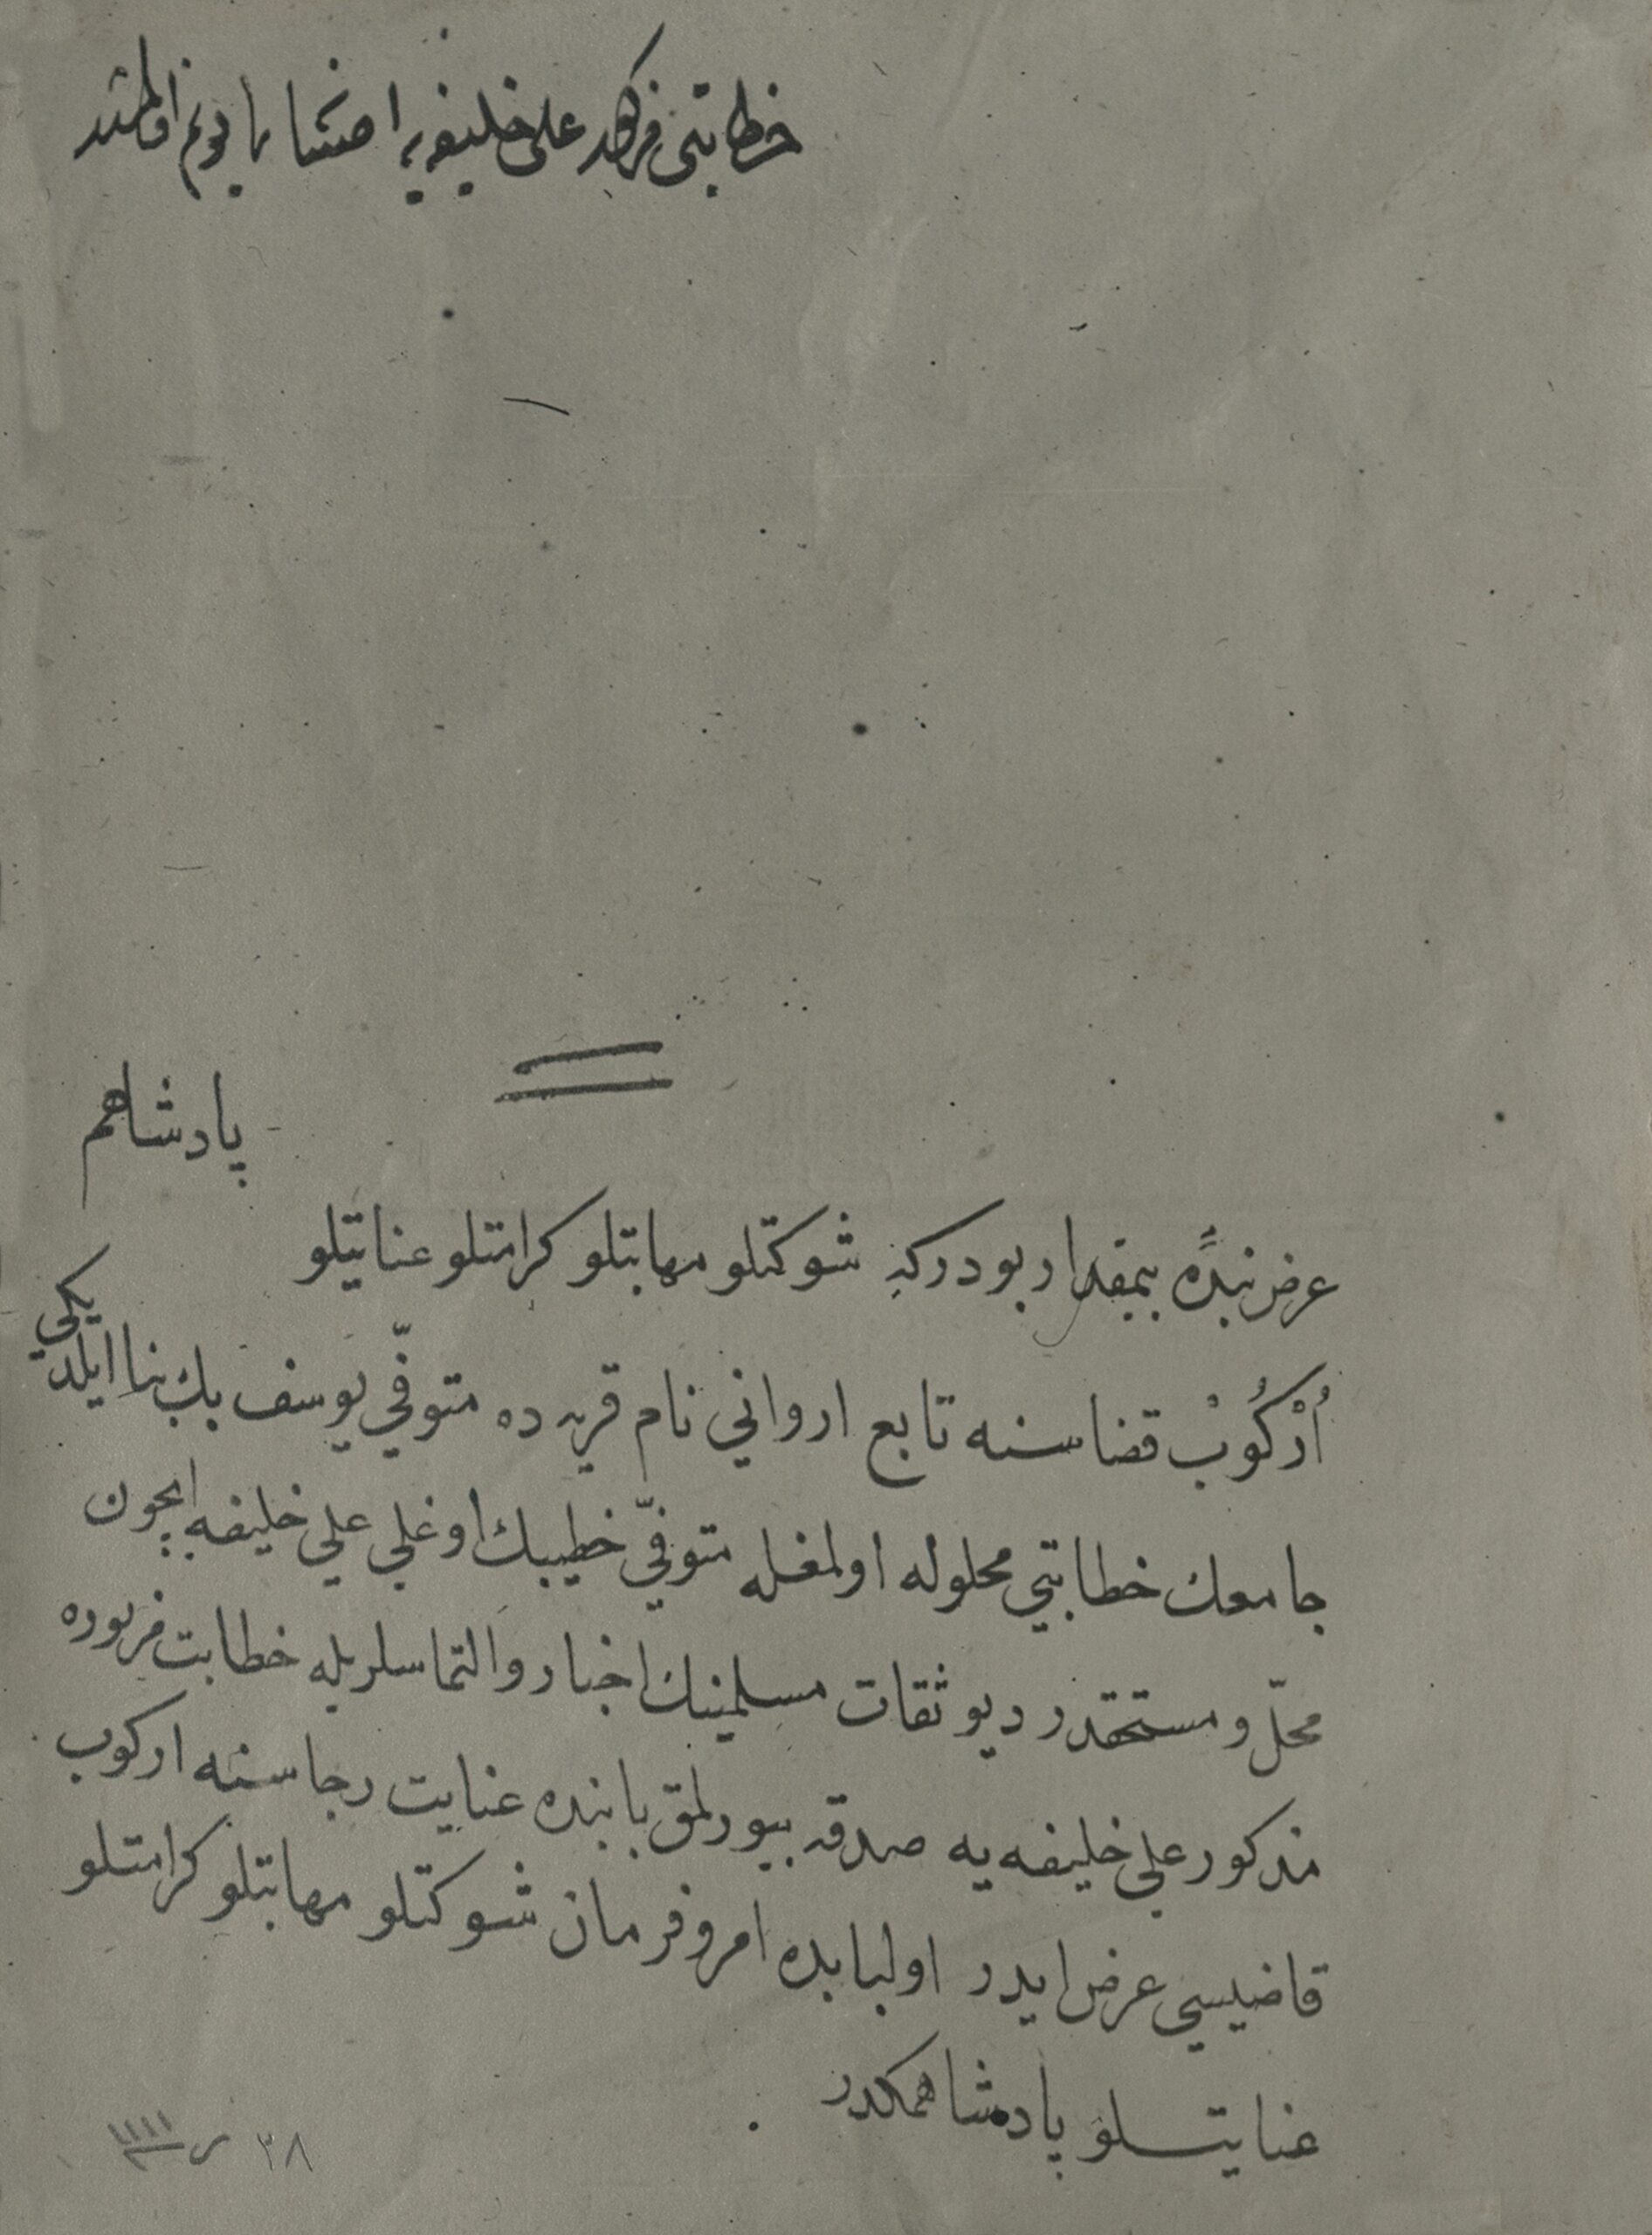 خطابتی مزبور علی خلیفه یه احسان هما یونم اولمشدر
پادشاهم
عرض بندهٔ بیمقدار بودركه شوكتلو مهابتلو كرامتلو عنایتلو
اُرْكُوبْ قضاسنه تابع اروانی نام قریه ده متوفّی یوسف بك بنا ایلدیكی
جامعك خطابتی محلوله اولمغله متوفّی خطیبك اوغلی علی خلیفه ایچون
محلّ و مستحقدر دیو ثقات مسلمینك اخبار والتماسلریله خطابت مزبوره
مذكور علی خلیفه یه صدقه بیورلمق بابنده عنایت رجاسنه اركوب
قاضیسی عرض ایدر اولبابده امر وفرمان شوكتلو مهابتلو كرامتلو
عنایتلو پادشاهمكدر
٢٨ ر ١١١١